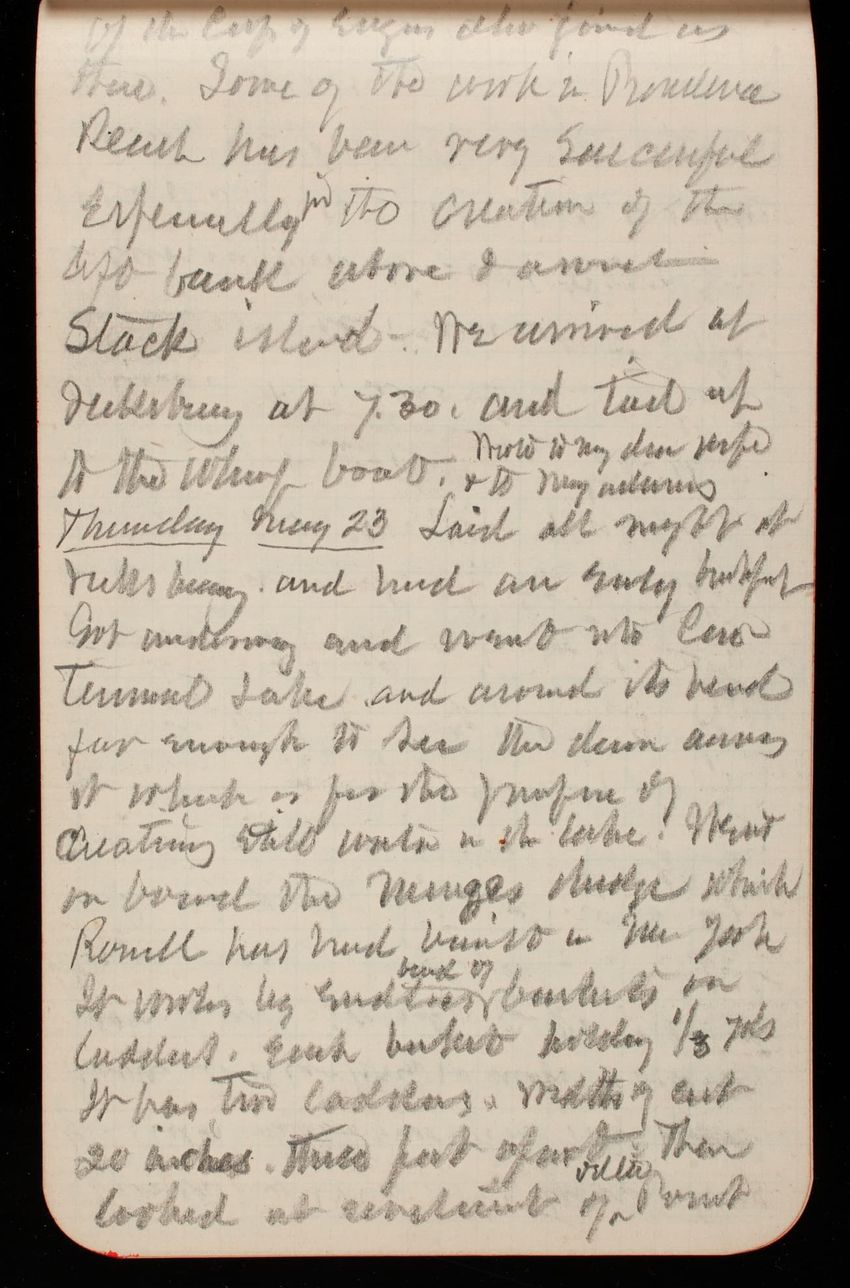 of the Corps of Engrs who joined us
there. Some of the work in Providence
Reach has been very Successful
Especially in the creation of the
bank above
Stack island. We arrived at
Vicksburg at 7.30. and tied up
to the Wharf boat. Wrote to my dear wife
& to
Thursday May 23 Laid all night at
Vicksburg. and had an early breakfast
Got underway and went into Cen-
tennial Lake and around its bend
far enough to see the dam across
it which is for the purpose of
Creating Still water in the lake. Went
on board the Menges dredge which
has had built in New York
It works by endless band of buckets on
ladders. Each bucket holding 1/3 yds
It has two ladders. Width of cut
20 inches. three feet apart. Then
looked at revetment of Delta Point